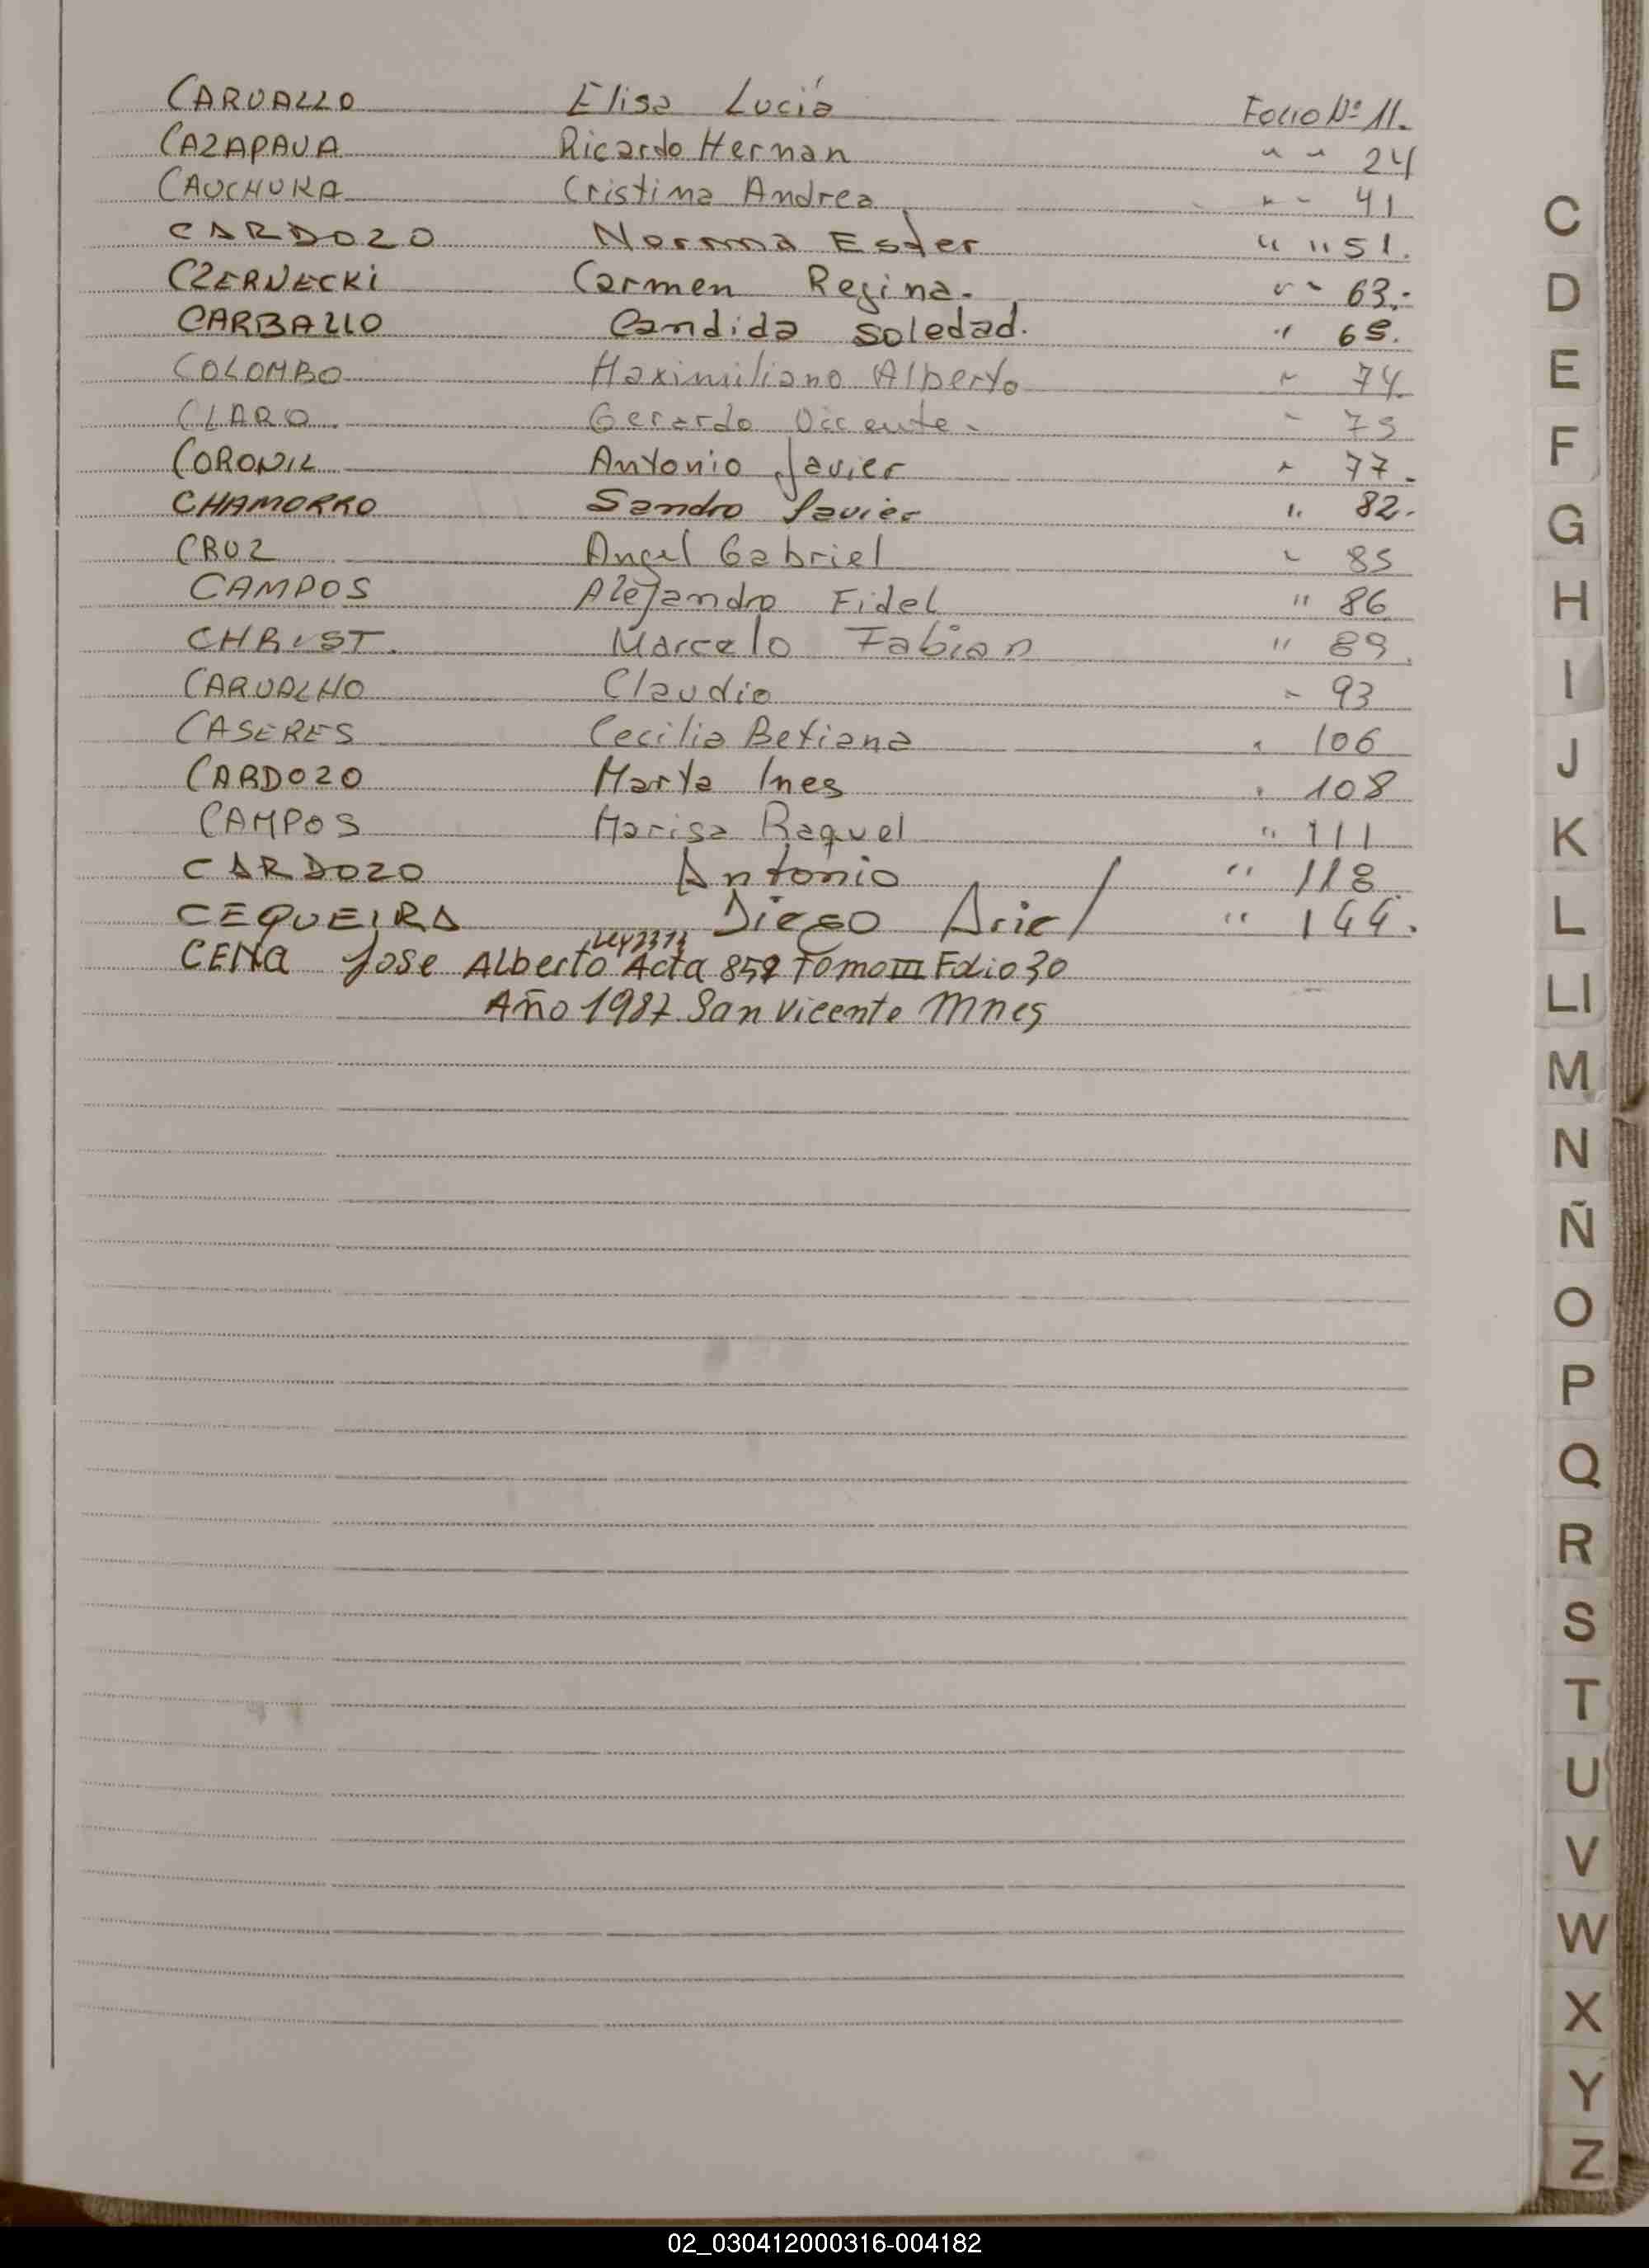 CARVALLO Elisa Lucía Folio Nº 11.
CAZAPAVA Ricardo Hernan " " 24
CAUCHUKA Cristina Andrea " " 41
CARDOZO Normma Ester " " 51.
CZERNECKi Carmen Regina. " " 63.-
CARBALLO Candida Soledad. "
COLOMBO Maximiliano Alberto " 74.
CLARO Gerardo Vicente. " 75
CORONIL Antonio Javier " 77.
CHAMORRO Sandro Javier " 82.
CRUZ Angel Gabriel " 85
CAMPOS Alejandro Fidel " 86
CHRIST. Marcelo Fabian " 89.
CARVALHO Claudio " 93
CASERES Cecilia Betiana " 106
CARDOZO Marta Ines " 108
CAMPOS Marisa Raquel " 111
CARDOZO Antonio " 118
CEQUEIRA Diego Ariel " 144.
Ley
CENA Jose Alberto Acta Tomo III Folio 30
Año 1987 San Vicente Mnes
C
D
E
F
G
H
I
J
K
L
Ll
M
N
Ñ
O
P
Q
R
S
T
U
V
W
X
Y
Z
02_030412000316-004182